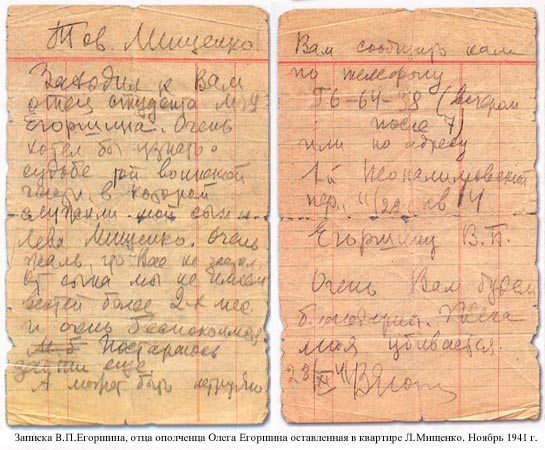 Тов. Мищенко!
Заходил к Вам
отец студента МГУ
Егоршина. Очень
хотел бы узнать о
судьбе той воинской
части в которой
служили мой сын и
Лева Мищенко. Очень
жаль, что Вас не застал.
От сына мы не имеем
вестей более 2-х мес.
и очень беспокоимся.
Постараюсь
зайти еще.
А может быть нетрудно
Вам сообщить нам
по телефону
Г6-64-38 (вечером
после 7)
или по адресу
1й Неопалимовский
пер., 11/22 кв 14
Егоршину В.П.
Очень Вам будем
благодарны.
моя убивается.
28/XI 41
Записка В.П.Егоршина, отца ополченца Олега Егоршина оставленная в квартире Л.Мищенко. Ноябрь 1941 г.